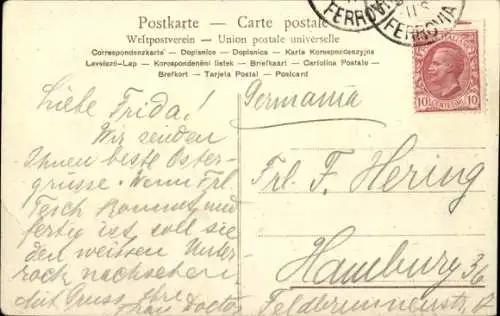 Postkarte – Carte postale
Weltpostverein – Union postale universelle
Correspondenzkarte – Dopisnice – Dopisnica – Karta Korespondencyjna
Levelező-Lap – Korespondenční listek – Briefkaart – Cartolina Postale –
Brefkort – Tarjeta Postal – Postcard
FERROVIA
FERROVIA
10 CENTESIMI 10
Germania
Liebe Frida!
Wir senden
Ihnen beste Oster-
grüsse. Wenn Frl.
Tesch kommt und
fertig ist soll sie
den weissen Unter
rock nachsehen
Mit Gruss Ihre
Frau Doctor
Frl. F. Hering
Hamburg 36
Feldbrunnenstr.